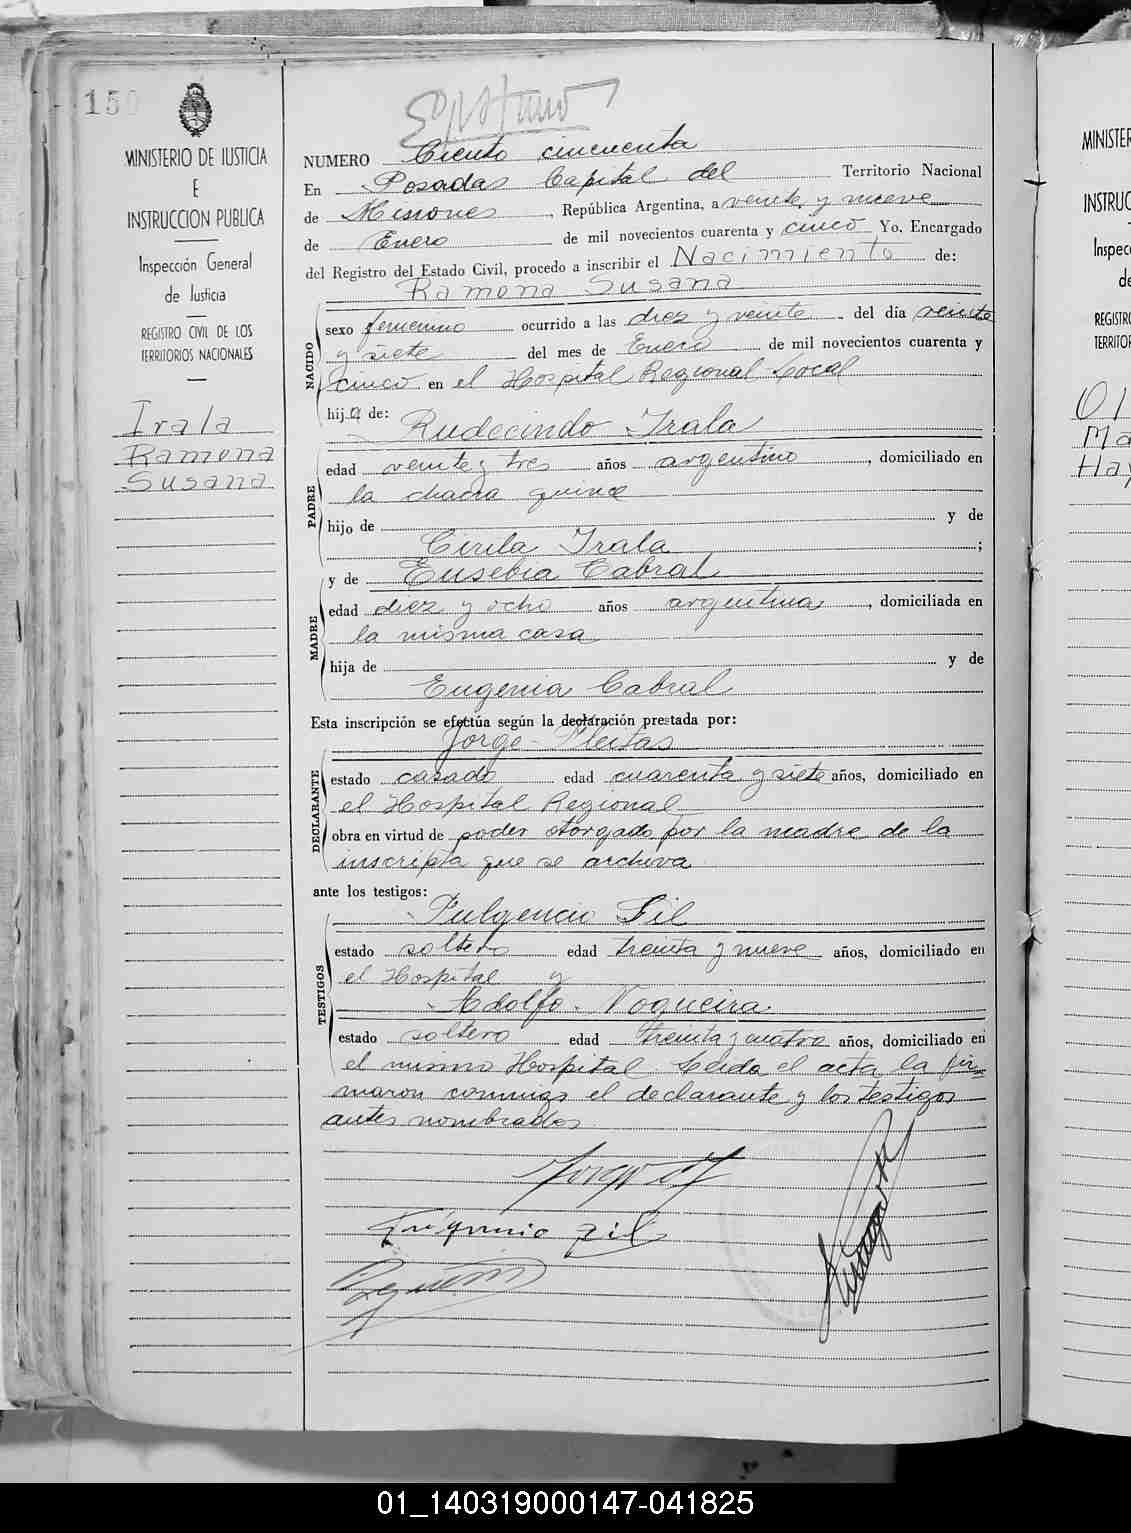 150
MINISTERIO DE JUSTICIA
E
INSTRUCCION PUBLICA
Inspección General
de Justicia
REGISTRO CIVIL DE LOS
TERRITORIOS NACIONALES
Irala
Ramona
Susana
NUMERO Ciento cincuenta
En Posadas Capital del Territorio Nacional
de Misiones, República Argentina, a veinte y nueve
de Enero de mil novecientos cuarenta y cinco Yo. Encargado
del Registro del Estado Civil, procedo a inscribir el Nacimiento de:
Ramona Susana
NACIDO
sexo femenino ocurrido a las diez y veinte del día veinte
y siete del mes de Enero de mil novecientos cuarenta y
cinco en el Hospital Regional Local
hija de:
Rudecindo Irala
PADRE
edad veinte y tres años argentino, domiciliado en
la chacra quince
hijo de y de
Cirila Irala ;
y de Eusebia Cabral
MADRE
edad diez y ocho años argentina, domiciliada en
la misma casa
hija de y de
Eugenia Cabral
Esta inscripción se efectúa según la declaración prestada por:
Jorge Fleitas
DECLARANTE
estado casado edad cuarenta y siete años, domiciliado en
el Hospital Regional
obra en virtud de poder otorgado por la madre de la
inscripta que se archiva
ante los testigos:
Fulgencio Gil
TESTIGOS
estado soltero edad treinta y nueve años, domiciliado en
el Hospital y
Adolfo Nogueira
estado soltero edad treinta y cuatro años, domiciliado en
el mismo Hospital Leida el acta la fir=
maron conmigo el declarante y los testigos
antes nombrados
Fulgencio Gil
MINISTER
INSTRUC
Inspec
de
REGISTRO
TERRITOR
Ol
Ma
Hay
01_140319000147-041825